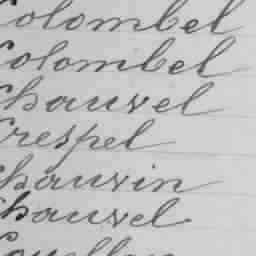 Colombel
Colombel
Chauvel
Crespel
Chauvin
Chauvel